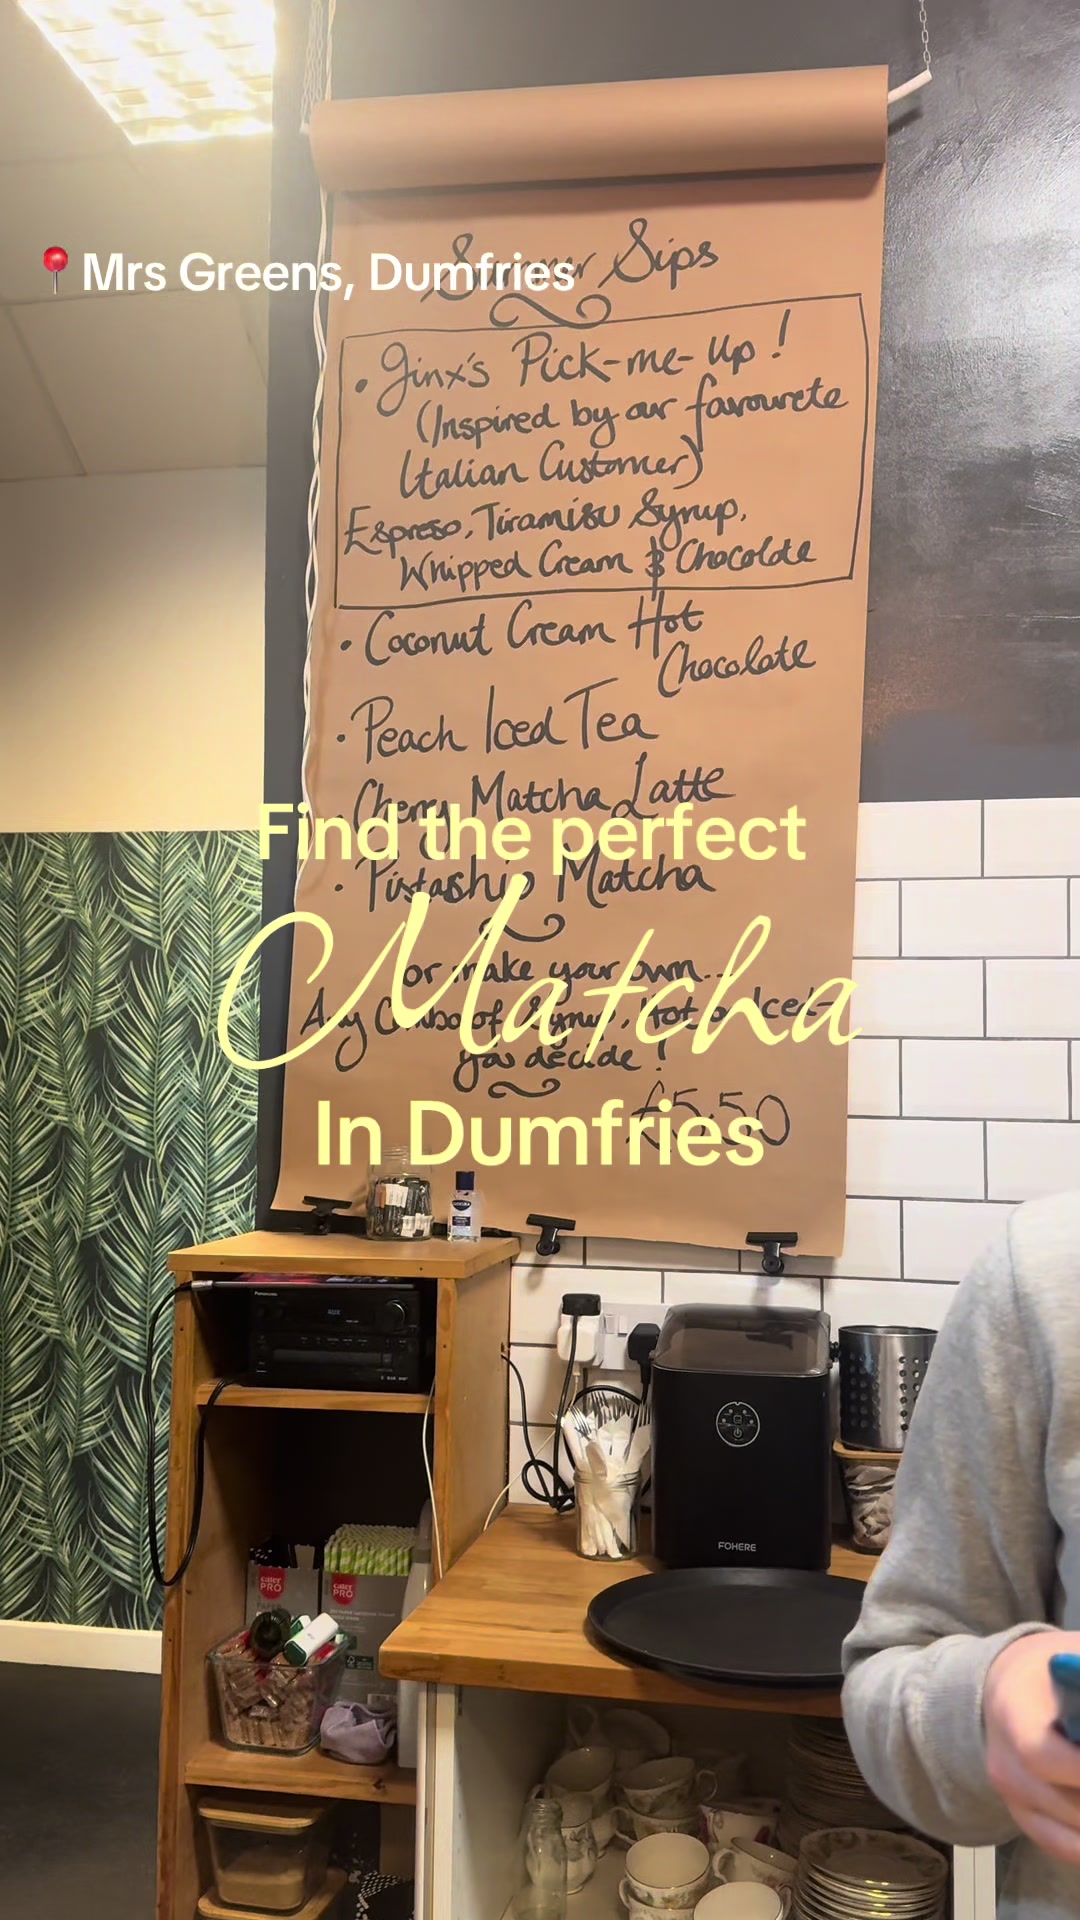 Summer Sips
📍Mrs Greens, Dumfries
• Jinx's Pick-me-up!
(Inspired by our favourete
Italian Customer)
Espreso, Tiramisu Syrup,
Whipped Cream & Chocolate
• Coconut Cream Hot
Chocolate
• Peach Iced Tea
• Cherry Matcha Latte
Find the perfect
• Pistashio Matcha
Matcha
or make your own...
Any Combo of Syrup, Hot or Iced-
you decide!
In Dumfries
£5.50
Panasonic
FOHERE
cater
PRO
PAPER
cater
PRO